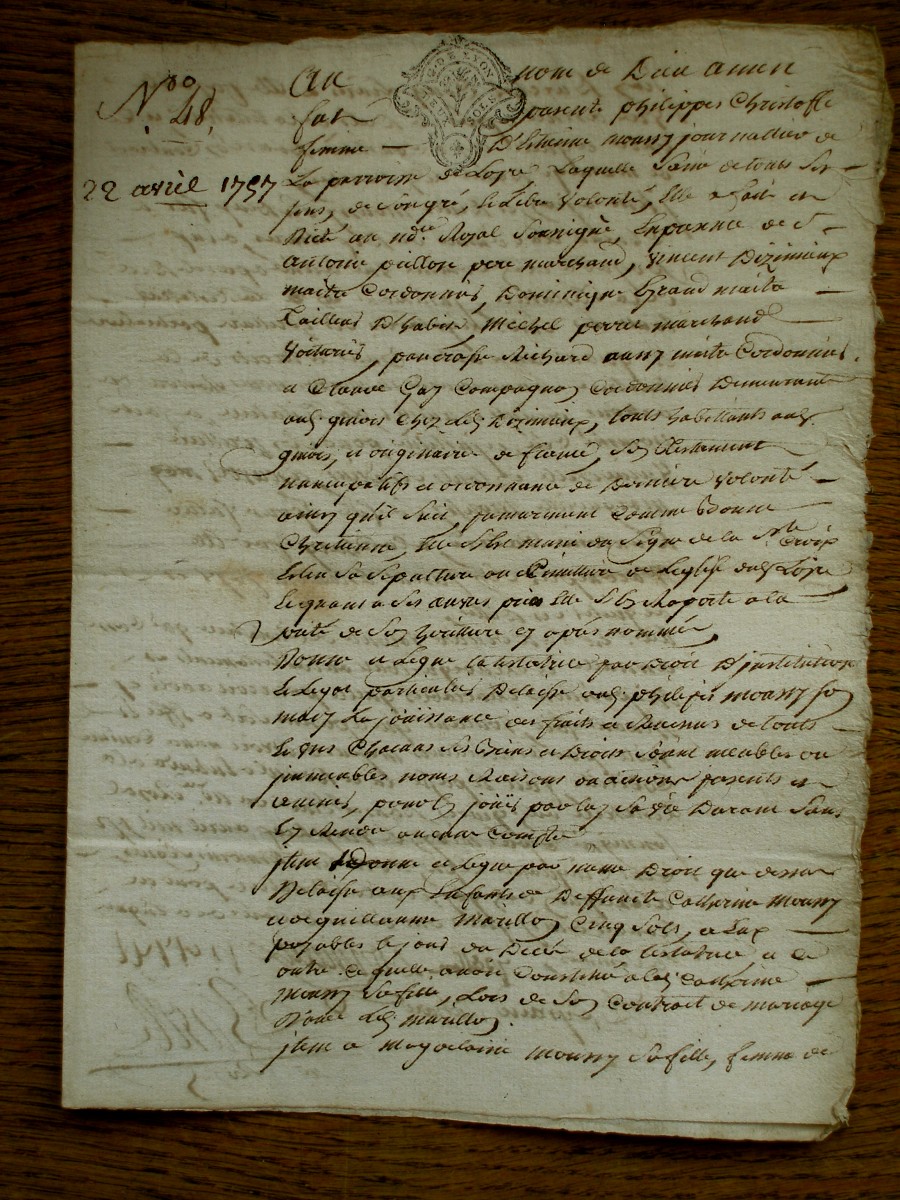 Nro 48,
22 avril 1757
G. DE LYON
SOLS
Au nom de Dieu amen
fut presente philippes Christofle
femme D'Estienne mousy journallier de
La parroisse de Loyre Laquelle Saine de touts Ses
sens, de Son gré, et Libre Volonté, Elle a fait et
Dicté au nore Royal Soussigné, En presence de Sr
Antoine peillon pere marchand, Vincent Dizimieux
maitre Cordonnier, Dominique Giraud maitre
Tailleur D'habits, Michel perret marchand
Voiturier, pancrasse Richard aussy maitre Cordonnier,
et Claude Gay Compagnon Cordonnier Demeurant
aud. givors Chez led. Dizimieux, touts habittants aud.
givors, et originaires de france, Son testament
nuncupatif et ordonnance de Derniere Volonté
ainsy qu'il Suit, premierement Comme bonne
Chretienne, Elle S'est munie du Signe de la Ste Croix
Eslu Sa Sepulture au Cimettiere de L'eglise dud. Loyre
Et quant a Ses œuvres pies Elle S'en Raporte a la
pieté de Son heritiere cy apres nommée,
Donne et Legue la testatrice par Droit D'institution
et Legat particulier Delaisse aud. mousy Son
mary La jouissance des fruits et Revenus de touts
et Uns Chacuns Ses biens et Droits Soient meubles ou
immeubles noms Raisons ou actions presents et
avenirs, pour En jouir par luy Sa vie Durant Sans
En Rendre aucun Compte
jtem Donne et Legue par meme Droit que dessus
Delaisse aux Enfants de Deffuncte Catherine mousy
et de guillaume Marillon Cinq Sols, a Eux
payables le jour du Decés de la testatrice, et ce
outre Ce quelle auroit Constitué a lad. Catherine
Mousy Sa fille, Lors de Son Contract de mariage
avec Led. marillon.
jtem a magdelaine mousy Sa fille, femme de